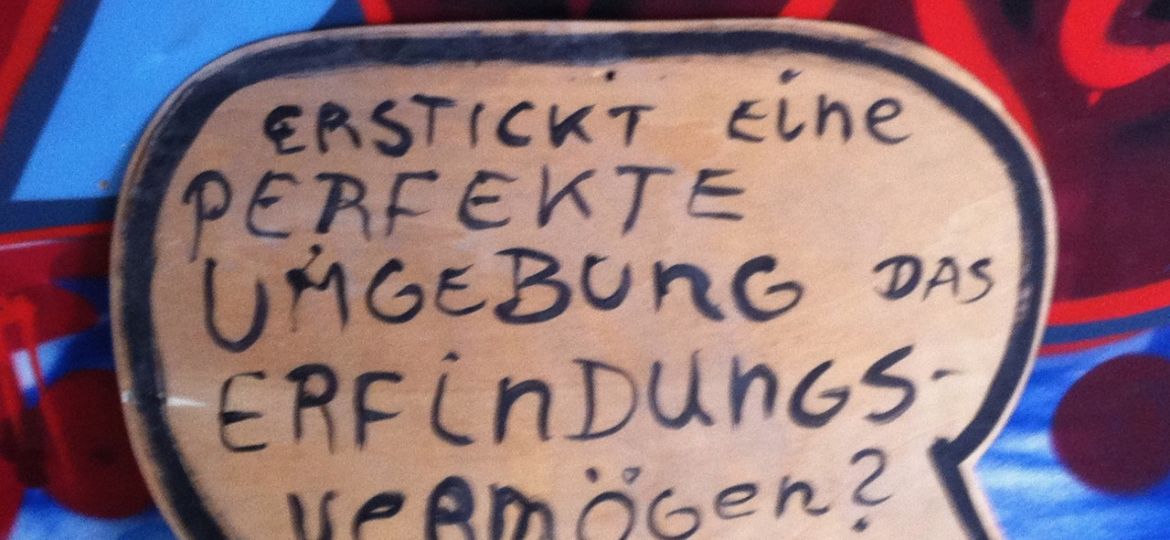 ERSTICKT EiNE
PERFEKTE
UMGEBUNG DAS
ERFiNDUNGS-
VERMÖGEN?